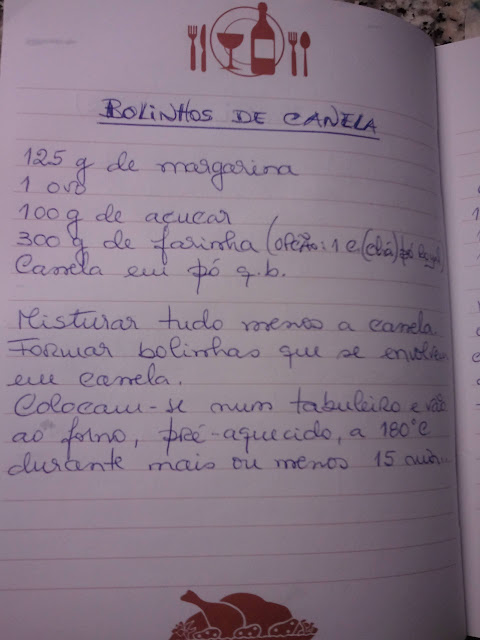 BOLINHOS DE CANELA
125 g de margarina
1 ovo
100 g de açucar
300 g de farinha (opção: 1 c. (chá) pó
Canela em pó q.b.
Misturar tudo menos a canela.
Formar bolinhas que se envolvem
em canela.
Colocam-se num tabuleiro e vão
ao forno, pré-aquecido, a 180°C
durante mais ou menos 15 min.